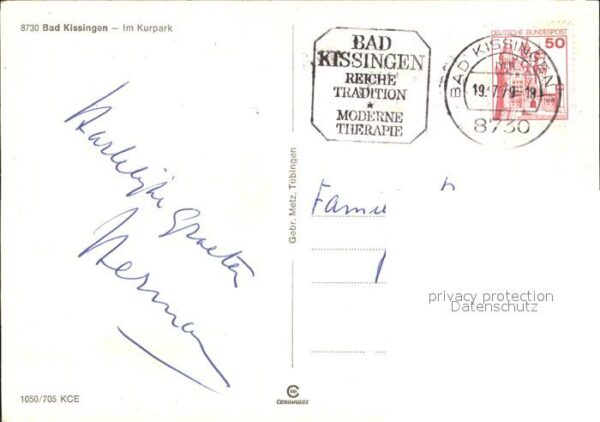 8730 Bad Kissingen — Im Kurpark
BAD
KISSINGEN
REICHE
TRADITION
★
MODERNE
THERAPIE
BAD KISSINGEN
19.-7.79.-19
8730
DEUTSCHE BUNDESPOST
50
Herman
Famili
Gebr. Metz, Tübingen
privacy protection
Datenschutz
1050/705 KCE
CHROMOLUX